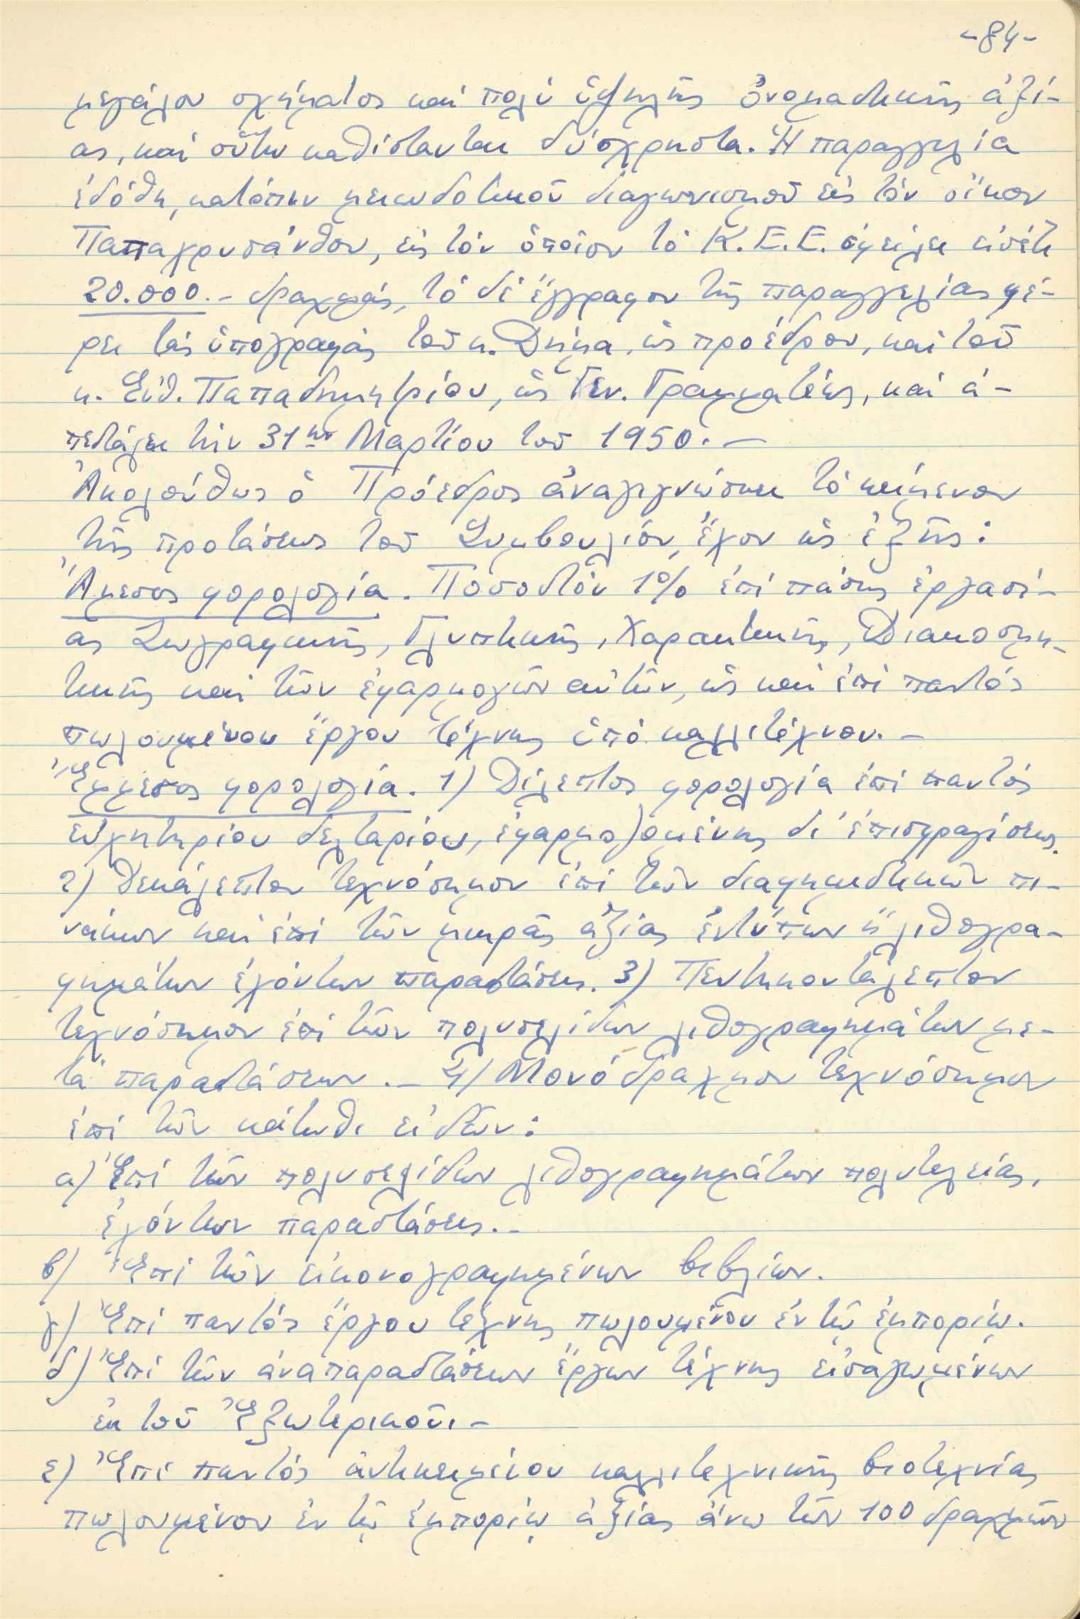 -84-
μεγάλου σχήματος καί πολύ ὑψηλῆς ὀνομαστικῆς ἀξί-
ας, καί οὕτω καθίστανται δύσχρηστα. Ἡ παραγγελία
ἐδόθη, κατόπιν μειοδοτικοῦ διαγωνισμοῦ εἰς τόν οἶκον
Παπαχρυσάνθου, εἰς τόν ὁποῖον τό Κ.Ε.Ε. ὀφείλει εἰσέτι
20.000.- δραχμάς, τό δέ ἔγγραφον τῆς παραγγελίας φέ-
ρει τάς ὑπογραφάς τοῦ κ. Δήμα, ὡς προέδρου, καί τοῦ
κ. Εὐθ. Παπαδημητρίου, ὡς Γεν. Γραμματέως, καί ἀ-
πεστάλει τήν 31ην Μαρτίου τοῦ 1950.-
Ἀκολούθως ὁ Πρόεδρος ἀναγιγνώσκει τό κείμενον
τῆς προτάσεως τοῦ Συμβουλίου, ἔχον ὡς ἑξῆς:
Ἄμεσος φορολογία. Ποσοστόν 1% ἐπί πάσης ἐργασί-
ας Ζωγραφικῆς, Γλυπτικῆς, Χαρακτικῆς, Διακοσμη-
τικῆς καί τῶν ἐφαρμογῶν αὐτῶν, ὡς καί ἐπί παντός
πωλουμένου ἔργου τέχνης ὑπό καλλιτέχνου.-
Ἔμμεσος φορολογία. 1) Δίλεπτος φορολογία ἐπί παντός
εὐχητηρίου δελταρίου, ἐφαρμοζομένης δι' ἐπισφραγίσεως.
2) Δεκάλεπτον τεχνόσημον ἐπί τῶν διαφημιστικῶν πι-
νάκων καί ἐπί τῶν μικρᾶς ἀξίας ἐντύπων ἤ λιθογρα-
φημάτων ἐχόντων παραστάσεις. 3) Πεντηκοντάλεπτον
τεχνόσημον ἐπί τῶν πολυσελίδων λιθογραφημάτων με-
τά παραστάσεων.- 4) Μονόδραχμον τεχνόσημον
ἐπί τῶν κάτωθι εἰδῶν:
α) Ἐπί τῶν πολυσελίδων λιθογραφημάτων πολυτελείας,
ἐχόντων παραστάσεις.-
β) Ἐπί τῶν εἰκονογραφημένων βιβλίων.
γ) Ἐπί παντός ἔργου τέχνης πωλουμένου ἐν τῷ ἐμπορίῳ.
δ) Ἐπί τῶν ἀναπαραστάσεων ἔργων τέχνης εἰσαγωμένων
ἐκ τοῦ Ἐξωτερικοῦ.-
ε) Ἐπί παντός ἀντικειμένου καλλιτεχνικῆς βιοτεχνίας
πωλουμένου ἐν τῷ ἐμπορίῳ ἀξίας ἄνω τῶν 100 δραχμῶν